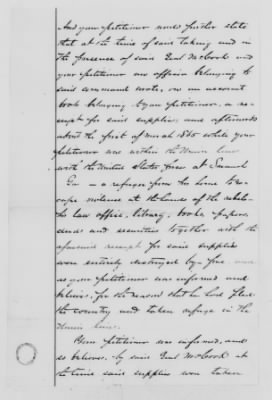 And your petitioner would further state
that at the time of said taking and in
the presence of said Genl McCook and
your petitioner an officer belonging to
said command wrote, on an account
book belonging to your petitioner, a re-
ceipt for said supplies and afterwards
about the first of March 1865 while your
petitioner was within the Union lines
with the United States forces at
Ga — a refugee from his home to es-
cape violence at the hands of the rebels
his law office, library, books papers,
and securities together with the
aforesaid receipt for said supplies
were entirely destroyed by fire and
as your petitioner was informed and
believes, for the reason that he had fled
the country and taken refuge in the
Union lines.
Your petitioner was informed, and
so believes, by said Genl McCook at
the time said supplies were taken